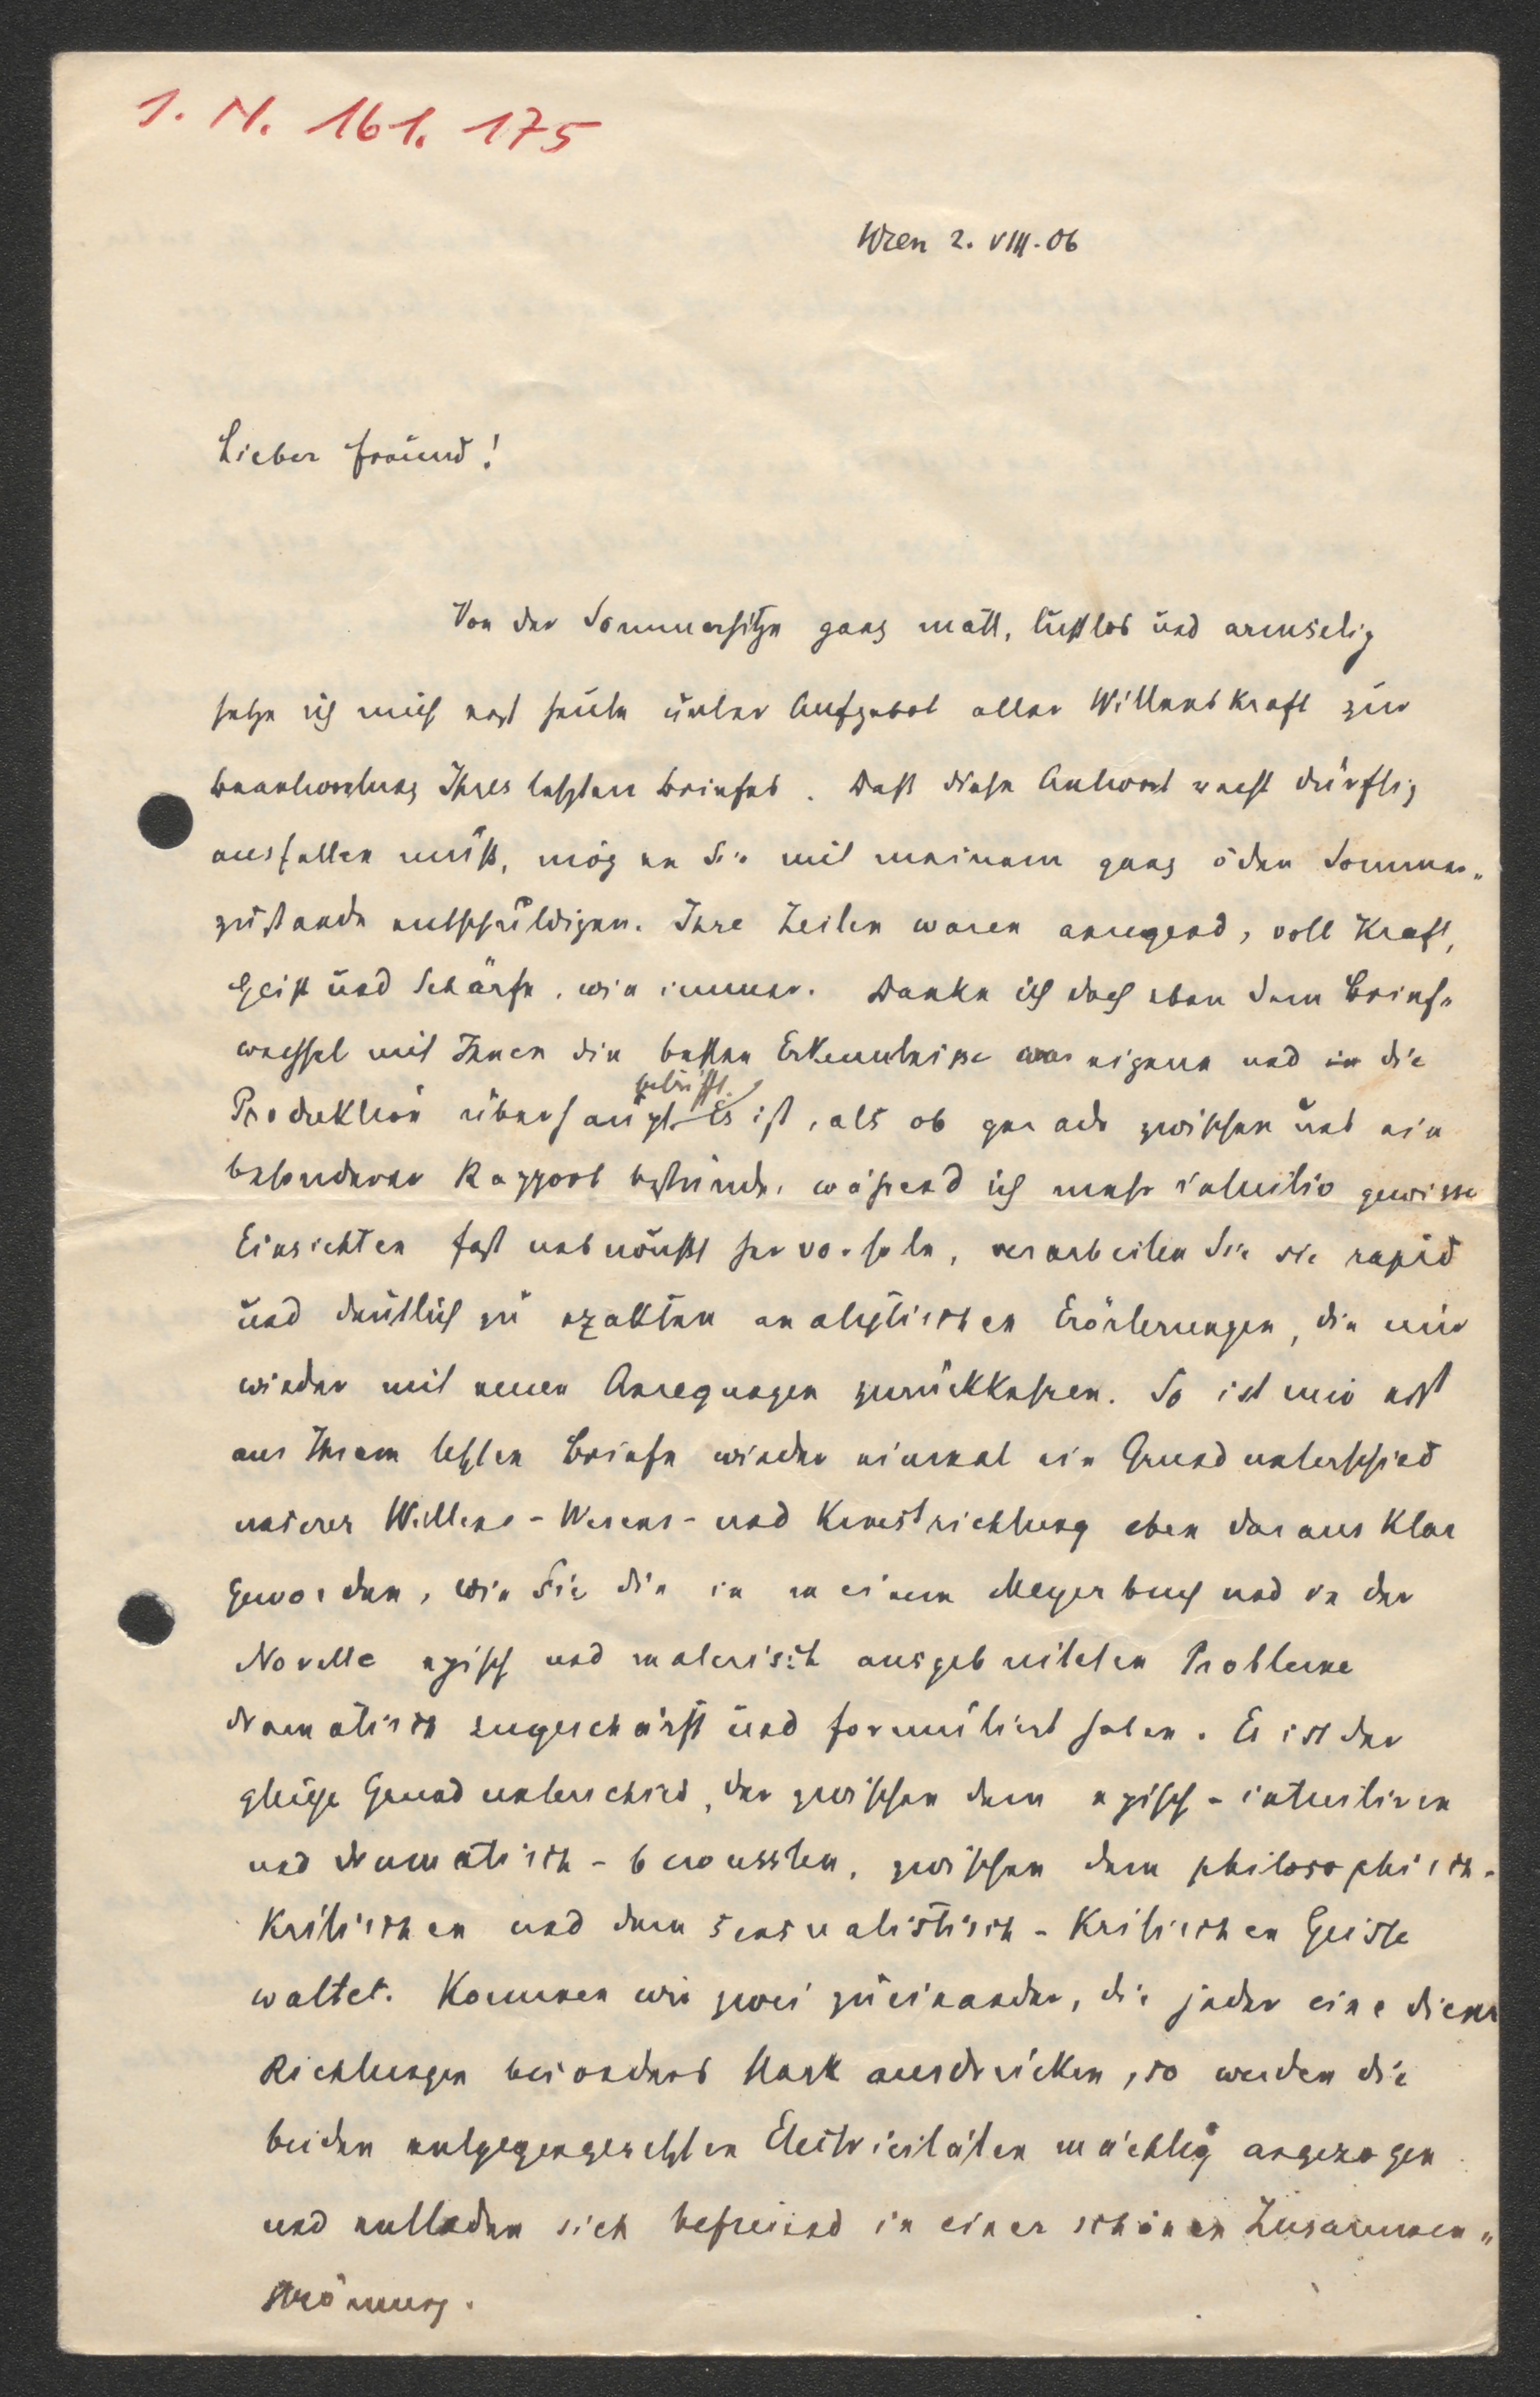 I. N. 161. 175
Wien 2. VIII. 06
Lieber Freund!
Von der Sommerhitze ganz matt, lustlos und armselig
setze ich mich erst heute unter Aufgebot aller Willenskraft zur
Beantwortung Ihres letzten Briefes. Daß diese Antwort recht dürftig
ausfallen muß, mögen Sie mit meinem ganz öden Sommer-
zustande entschuldigen. Ihre Zeilen waren anregend, voll Kraft,
Geist und Schärfe, wie immer. Danke ich doch eben dem Brief-
wechsel mit Ihnen die besten Erkenntnisse was eigene und die
Produktion überhaupt betrifft. Es ist, als ob gerade zwischen uns ein
besonderer Rapport bestünde, während ich mehr intuitiv gewisse
Einsichten fast unbewußt hervorhole, verarbeiten Sie sie rapid
und deutlich zu exakten analytischen Erörterungen, die mir
wieder mit neuen Anregungen zurückkehren. So ist mir erst
aus Ihrem letzten Briefe wieder einmal ein Grundunterschied
unserer Willens-Wesens- und Kunstrichtung eben daraus klar
geworden, wie Sie die in meinem Meyerbuch und in der
Novelle episch und malerisch ausgebreiteten Probleme
dramatisch zugeschärft und formuliert haben. Es ist der
gleiche Grundunterschied, der zwischen dem episch-intuitiven
und dramatisch-bewussten, zwischen dem philosophisch-
kritischen und dem sensualistisch-kritischen Geiste
waltet. Kommen wir zwei zueinander, die jeder eine dieser
Richtungen besonders stark ausdrücken, so werden die
beiden entgegengesetzten Electricitäten mächtig angezogen
und entladen sich befreiend in einer schönen Zusammen-
strömung.